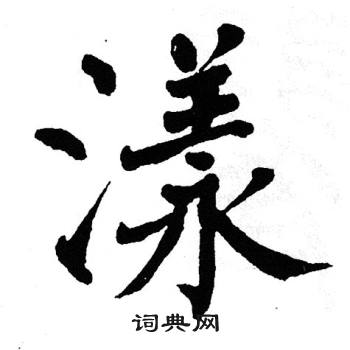 漾
词典网